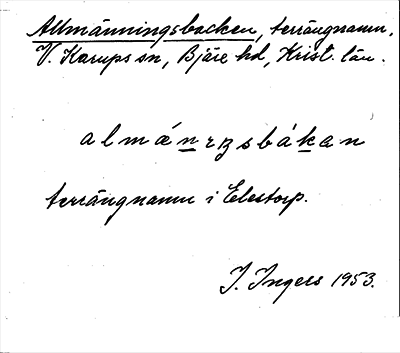 Allmänningsbacken, terrängnamn,
V. Karups sn, Bjäre hd, Krist. län.
almánɩŋsbákan
terrängnamn i Elestorp.
I. Ingers 1953.